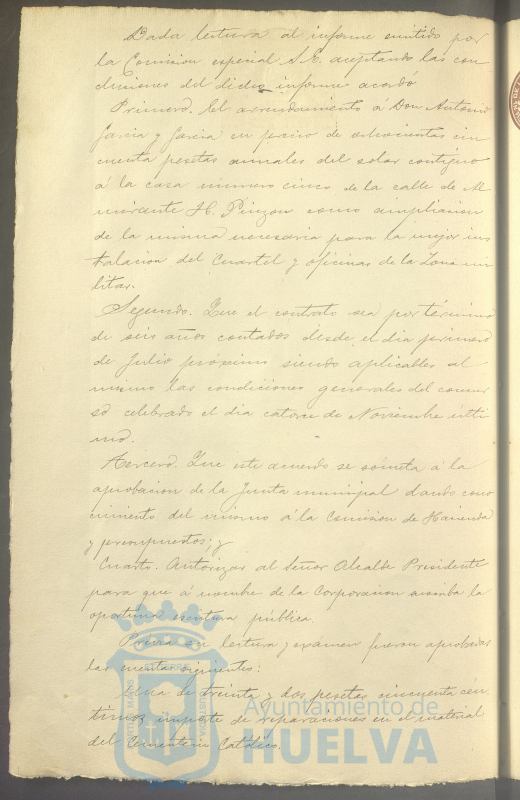 Dada lectura al informe emitido por
la Comision especial S. E. aceptando las con
clusiones del dicho informe acordó
Primero. El arrendamiento á Don Antonio
Garcia y Garcia en precio de ochocientas cin
cuenta pesetas anuales del solar contiguo
á la casa número cinco de la calle de Al
mirante H. Pinzon como ampliacion
de la misma necesaria para la mejor ins
talacion del Cuartel y oficinas de la Zona mi
litar.
Segundo. Que el contrato sea por término
de seis años contados desde el dia primero
de Julio próximo siendo aplicables al
mismo las condiciones generales del concur
so celebrado el dia catorce de Noviembre últi
mo.
Tercero. Que este acuerdo se someta á la
aprobacion de la Junta municipal dando cono
cimiento del mismo á la Comision de Hacienda
y presupuestos; y
Cuarto. Autorizar al Señor Alcalde Presidente
para que á nombre de la Corporacion suscriba la
oportuna escritura pública.
Previa su lectura y exámen fueron aprobadas
las cuentas siguientes:
Una de treinta y dos pesetas cincuenta cén
timos importe de reparaciones en el material
del Cementerio Católico.
Ayuntamiento de
HUELVA